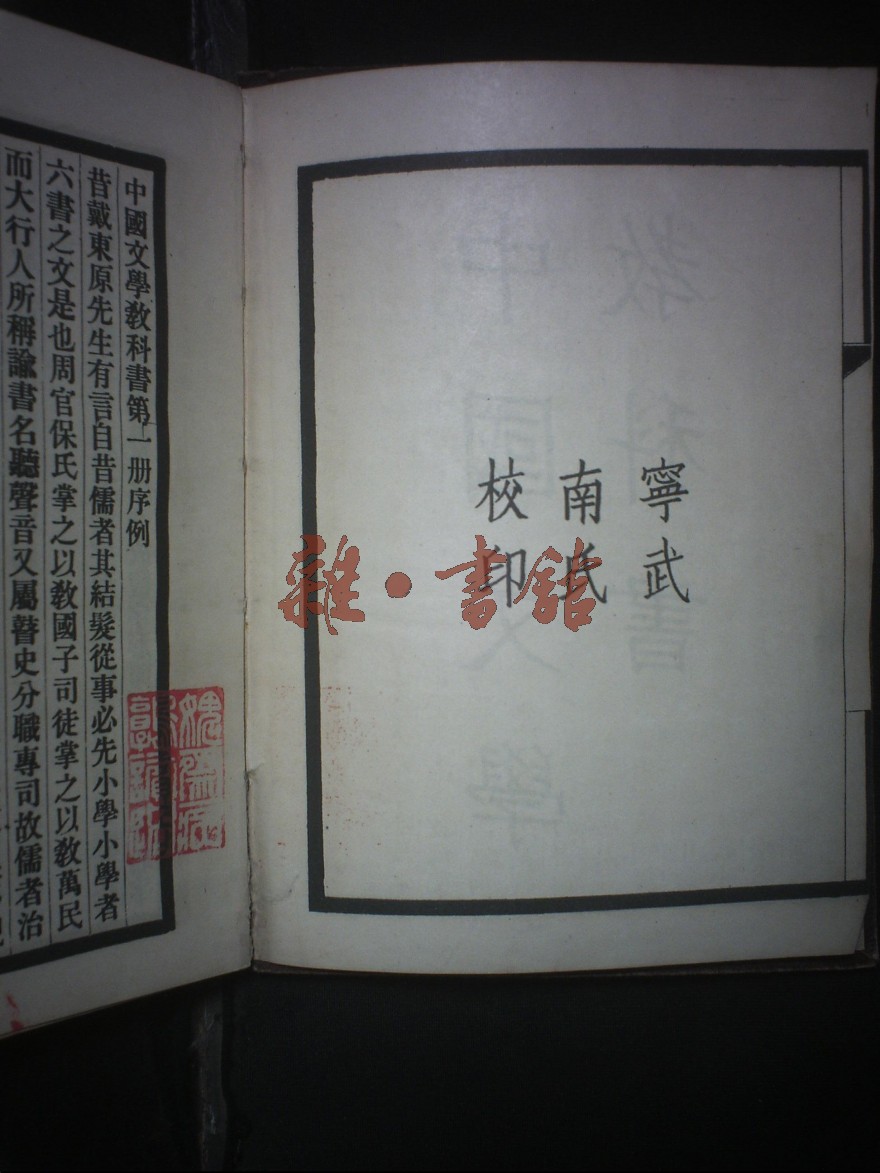 寧武
南氏
校印
中國文學教科書第一册序例
昔戴東原先生有言自昔儒者其結髮從事必先小學小學者
六書之文是也周官保氏掌之以敎國子司徒掌之以敎萬民
而大行人所稱諭書名聽聲音又屬瞽史分職專司故儒者治
雜·書館